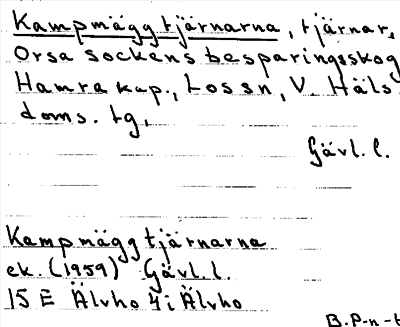 Kampmäggtjärnarna, tjärnar,
Orsa sockens besparingsskog
Hamra kap., Lossn, V. Häls
doms. tg,
Gävl. l.
Kampmäggtjärnarna
ek. (1959) Gävl. l.
15 E Älvho 4 i Älvho
B.P-n-t